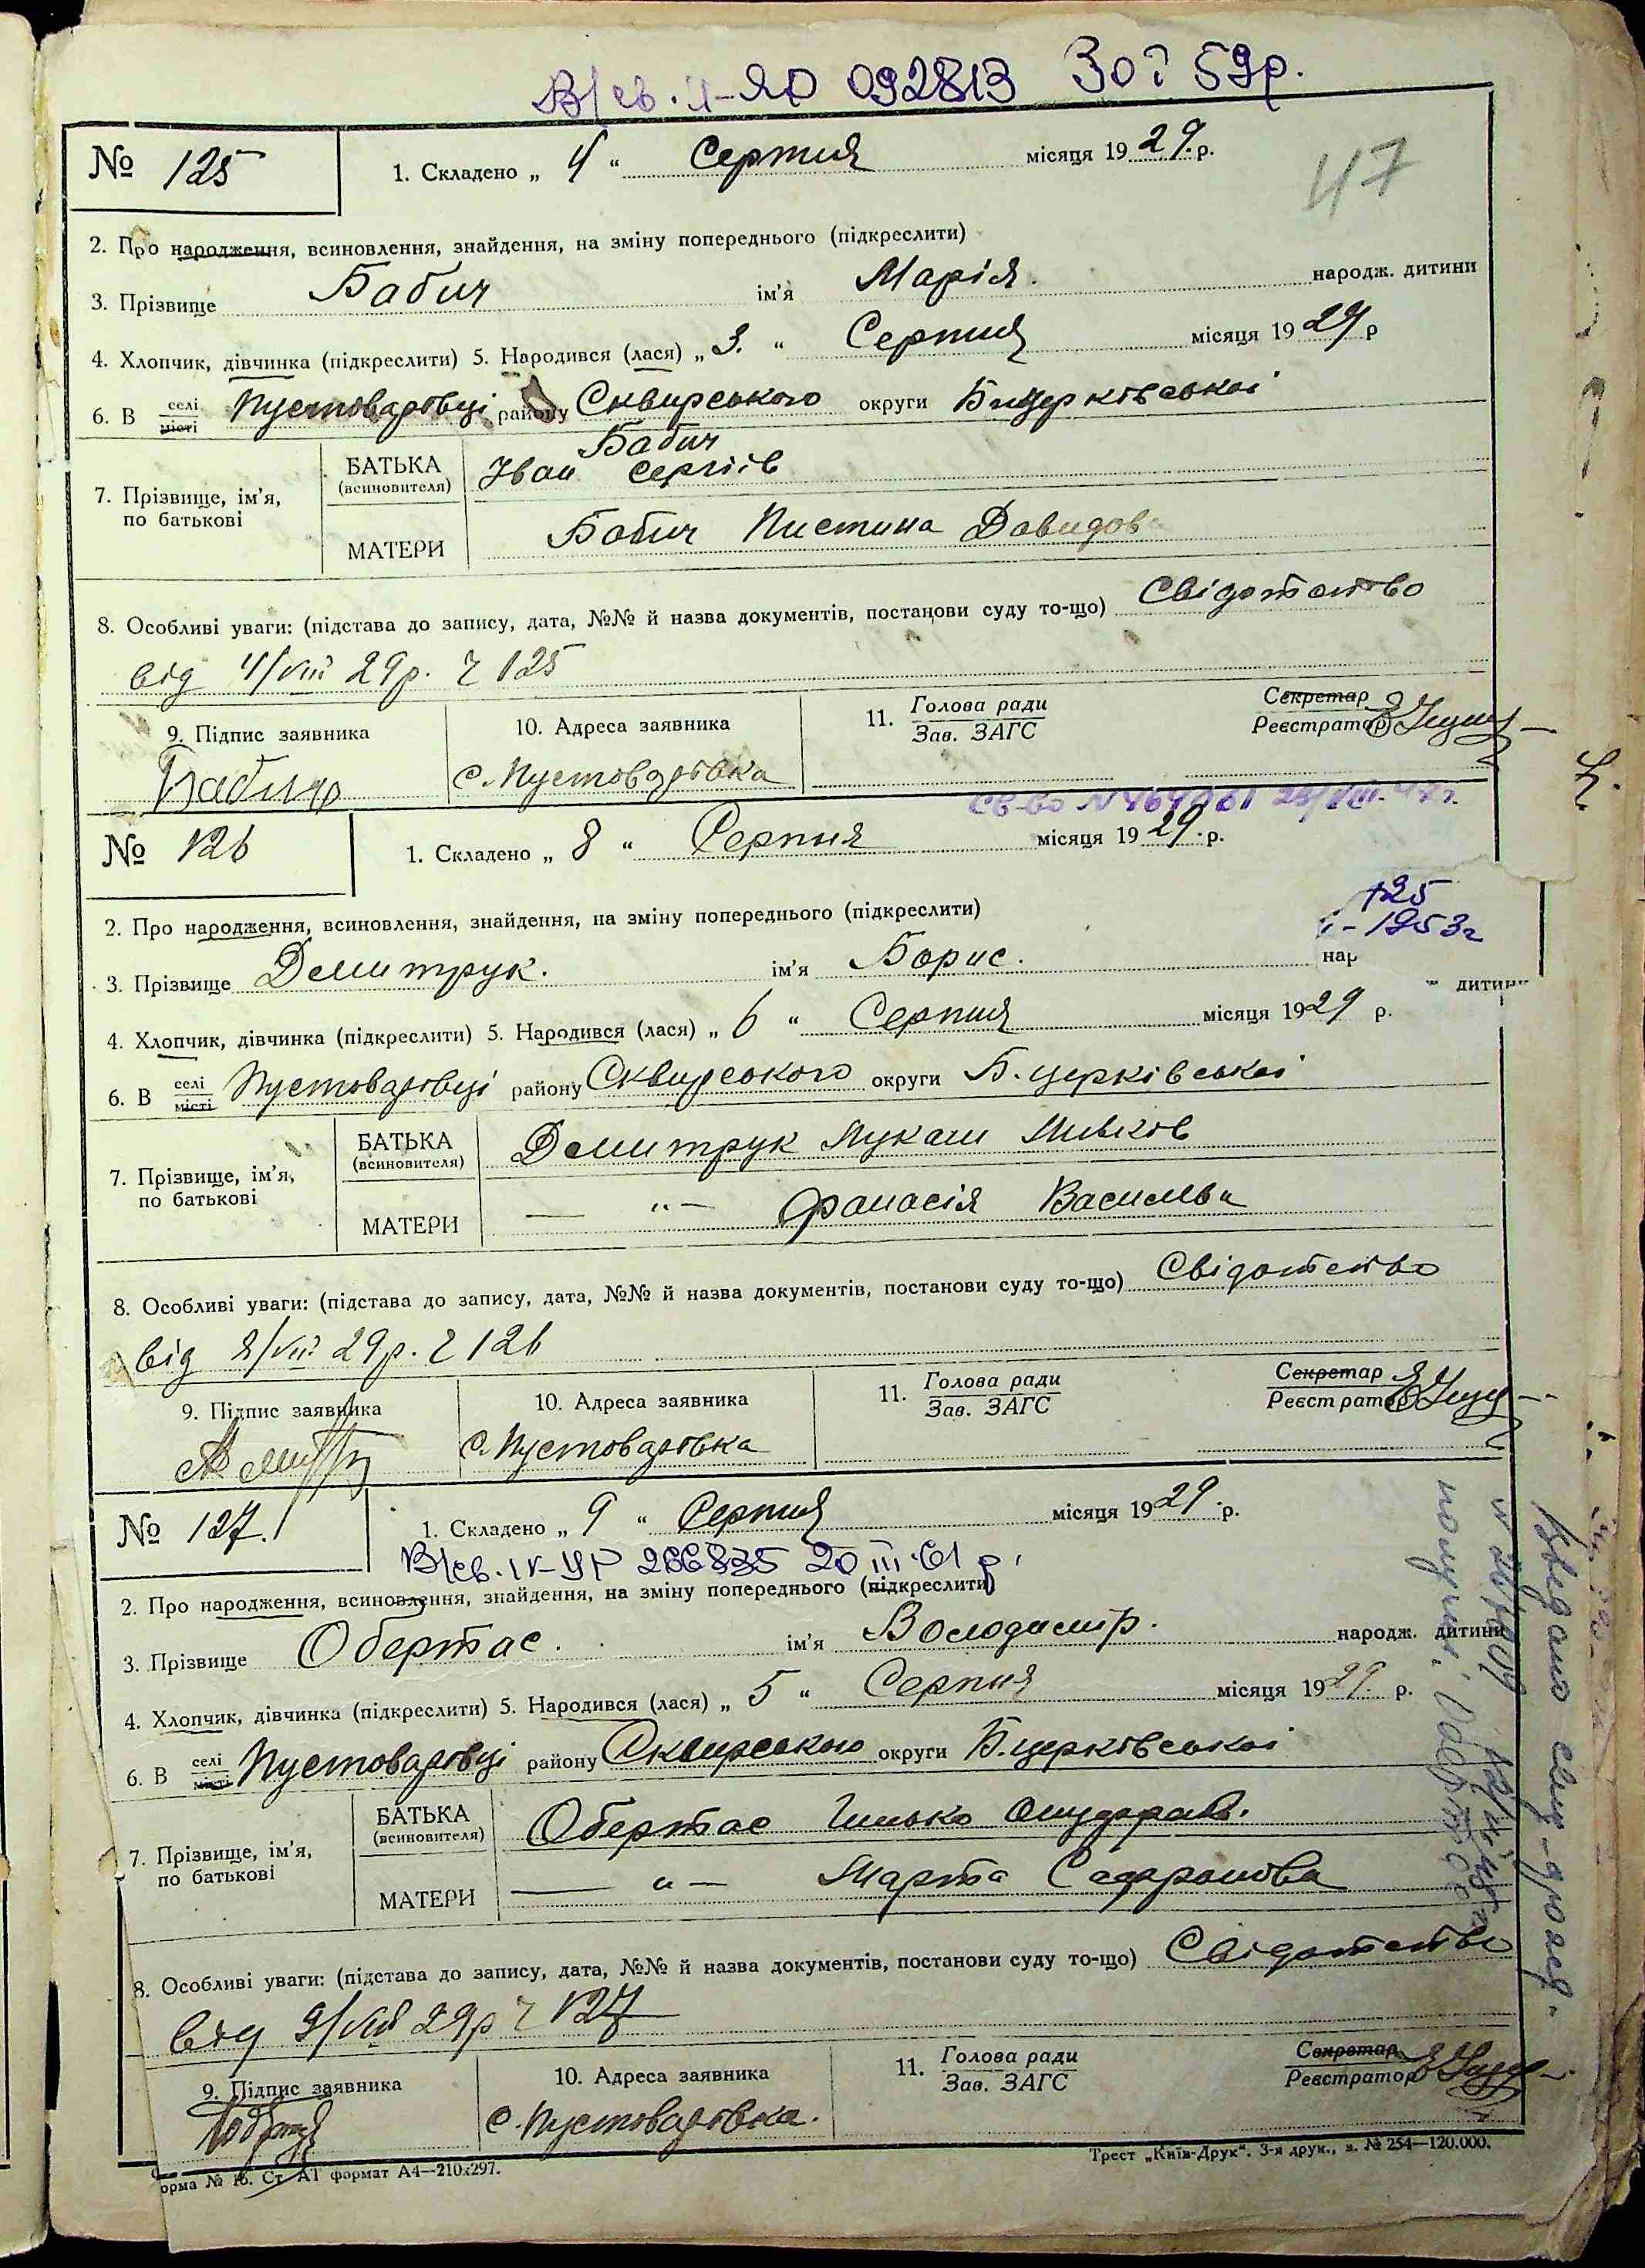 В/св. 092813 30 ї 59р.
№ 125
1. Складено „ 4 “ Серпня місяця 1929.р.
47
2. Про народження, всиновлення, знайдення, на зміну попереднього (підкреслити)
3. Прізвище Бабич ім'я Марія. народж. дитини
4. Хлопчик, дівчинка (підкреслити) 5. Народився (лася) „ 3. “ Серпня місяця 1929 р
6. В селі місті Пустоварівці району Сквирського округи Б.церківської
7. Прізвище, ім'я, по батькові
БАТЬКА (всиновителя) Бабич
Іван Сергіїв
МАТЕРИ Бабич Пистина Давидов
8. Особливі уваги: (підстава до запису, дата, №№ й назва документів, постанови суду то-що) Свідотство
від 4/VIII 29р. ч 125
9. Підпис заявника
10. Адреса заявника
11. Голова ради Зав. ЗАГС
Секретар Реєстратор
Бабич с. Пустоварівка
№ 126
1. Складено „ 8 “ Серпня місяця 1929.р.
125
1953г
2. Про народження, всиновлення, знайдення, на зміну попереднього (підкреслити)
3. Прізвище Демитрук. ім'я Борис. нар дитини
4. Хлопчик, дівчинка (підкреслити) 5. Народився (лася) „ 6 “ Серпня місяця 1929 р.
6. В селі місті Пустоварівці району Сквирського округи Б.церківської
7. Прізвище, ім'я, по батькові
БАТЬКА (всиновителя) Демитрук Лукаш
МАТЕРИ — „ — Фанасія Васильва
8. Особливі уваги: (підстава до запису, дата, №№ й назва документів, постанови суду то-що) Свідотство
від 8/VIII 29р. ч 126
9. Підпис заявника
10. Адреса заявника
11. Голова ради Зав. ЗАГС
Секретар Реєстратор
с. Пустоварівка
№ 127.
1. Складено „ 9 “ Серпня місяця 1929.р.
В/св. IV-УР 266835 20 III.61 р.
2. Про народження, всиновлення, знайдення, на зміну попереднього (підкреслити)
3. Прізвище Обертас. ім'я Володимір. народж. дитини
4. Хлопчик, дівчинка (підкреслити) 5. Народився (лася) „ 5 “ Серпня місяця 1929. р.
6. В селі місті Пустоварівці району Сквирського округи Б.церківської
7. Прізвище, ім'я, по батькові
БАТЬКА (всиновителя) Обертас Гнько
МАТЕРИ — „ — Марта Сафронова
8. Особливі уваги: (підстава до запису, дата, №№ й назва документів, постанови суду то-що) Свідотство
від 9/VIII 29р ч 127
9. Підпис заявника
10. Адреса заявника
11. Голова ради Зав. ЗАГС
Секретар Реєстратор
с. Пустоварівка.
орма № 16. Ст. А1 формат А4—210х297.
Трест „Київ-Друк“. 3-я друк., з. № 254—120.000.